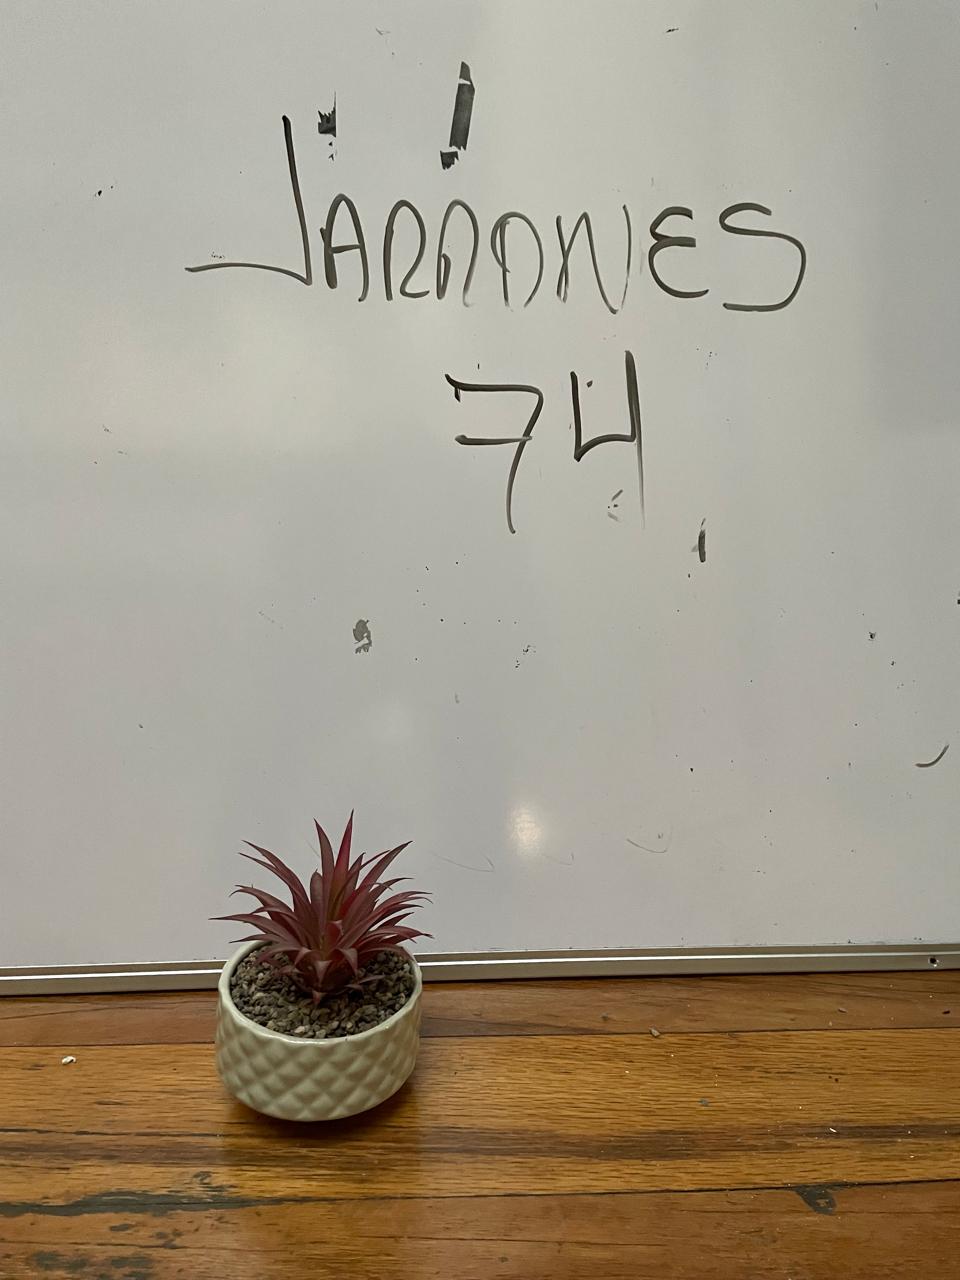 JARRONES
74